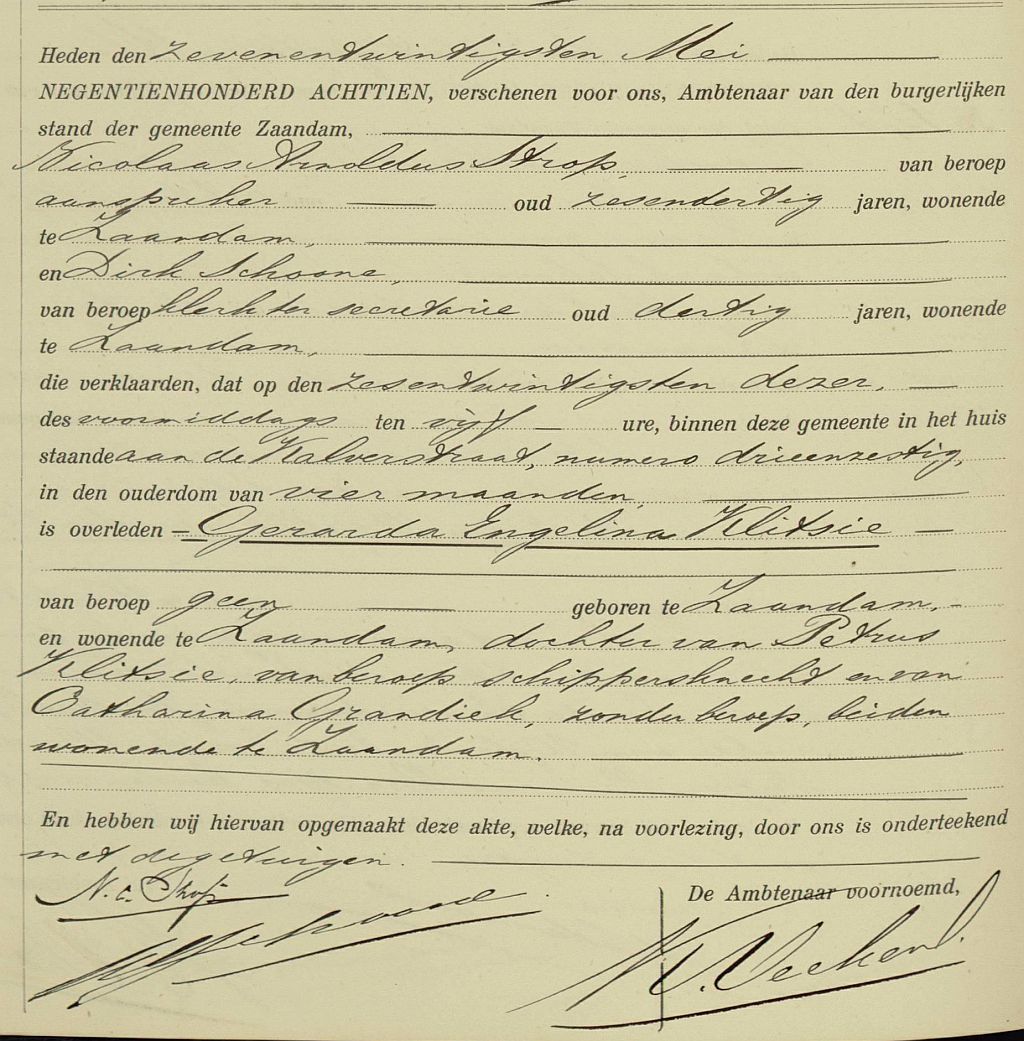 Heden den zevenentwintigsten Mei
NEGENTIENHONDERD ACHTTIEN, verschenen voor ons, Ambtenaar van den burgerlijken
stand der gemeente Zaandam,
Nicolaas Arnoldus Strop, van beroep
aanspreker oud zesendertig jaren, wonende
te Zaandam,
en Dirk Schoone,
van beroep klerk ter secretarie oud dertig jaren, wonende
te Zaandam,
die verklaarden, dat op den zesentwintigsten dezer,
des voormiddags ten vijf ure, binnen deze gemeente in het huis
staande aan de Kalverstraat, numero drieenzestig,
in den ouderdom van vier maanden,
is overleden Gerarda Engelina Klitsie
van beroep geen geboren te Zaandam,
en wonende te Zaandam, dochter van Petrus
Klitsie, van beroep schippersknecht en van
Catharina Grandiek, zonder beroep, beiden
wonende te Zaandam.
En hebben wij hiervan opgemaakt deze akte, welke, na voorlezing, door ons is onderteekend
met de getuigen.
N. A. Strop
De Ambtenaar voornoemd,
Schoone